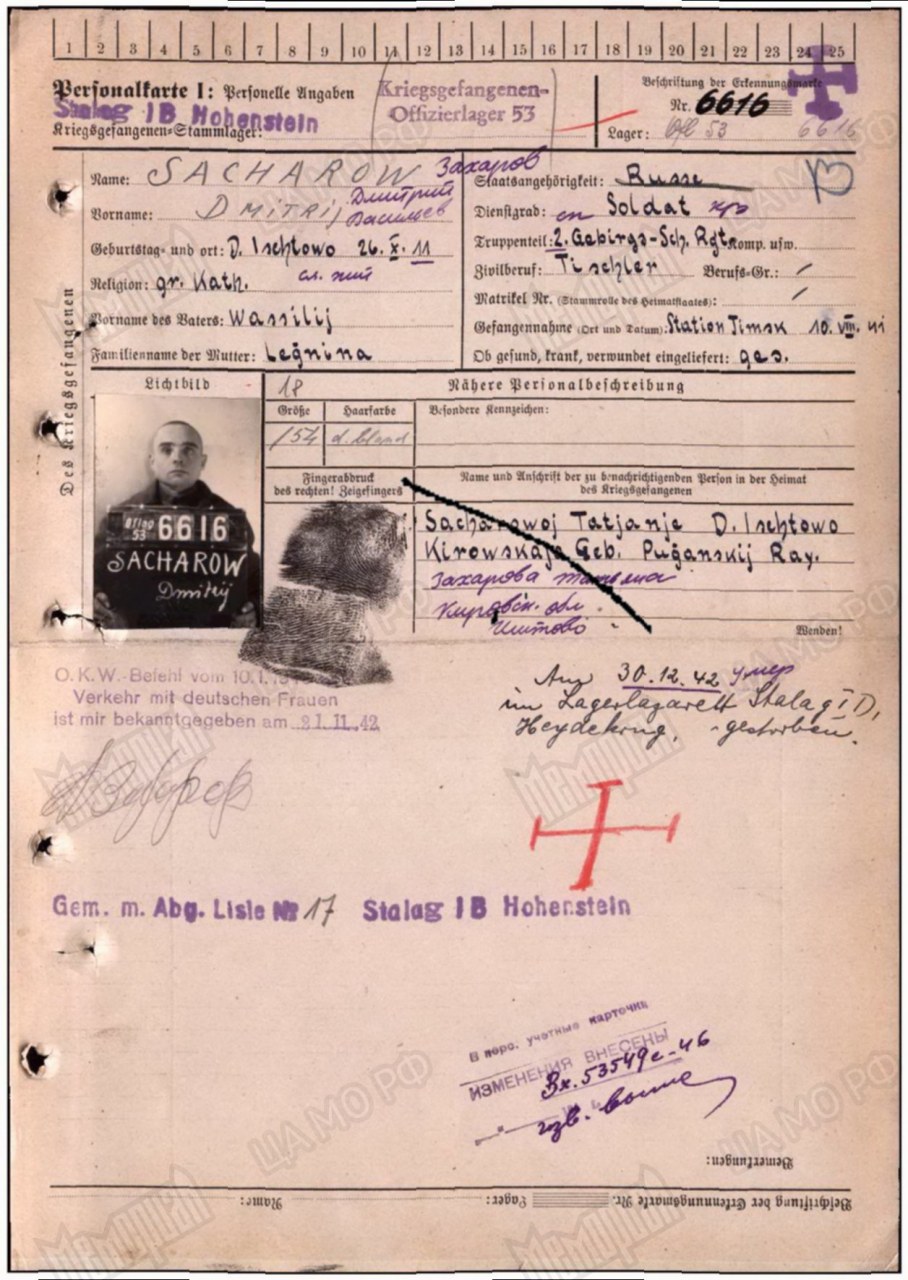 1 2 3 4 5 6 7 8 9 10 11 12 13 14 15 16 17 18 19 20 21 22 23 24 25
Personalkarte I: Personelle Angaben
Stalag IB Hohenstein
Kriegsgefangenen-Stammlager:
Kriegsgefangenen-
Offizierlager 53
Beschriftung der Erkennungsmarke
Nr. 6616
Lager: Ofl 53 6616
Des Kriegsgefangenen
Name: SACHAROW Захаров
Vorname: DMITRIJ Дмитрий
Васильев
Geburtstag- und ort: D. Ischtowo 26. X. 11
Religion: gr. Kath.
Vorname des Vaters: Wassilij
Familienname der Mutter: Legnina
Staatsangehörigkeit: Russe
Dienstgrad: Soldat
Truppenteil: 2. Gebirgs-Sch. Rgt. Komp. usw.
Zivilberuf: Tischler Berufs-Gr.: /
Matrikel Nr. (Stammrolle des Heimatstaates): /
Gefangennahme (Ort und Datum): Station Timsk 10. VIII. 41
Ob gesund, krank, verwundet eingeliefert: ges.
Lichtbild
18
Nähere Personalbeschreibung
Größe Haarfarbe Besondere Kennzeichen:
154 d. blond
Fingerabdruck
des rechten! Zeigefingers
Name und Anschrift der zu benachrichtigenden Person in der Heimat
des Kriegsgefangenen
Oflag
53 6616
SACHAROW
Dmitrij
Sacharowoj Tatjanje D. Ischtowo
Kirowskaja Geb. Puganskij Ray.
Захарова Татьяна
Кировск. обл.
Иштово
Wenden!
O.K.W.-Befehl vom 10.1.
Verkehr mit deutschen Frauen
ist mir bekanntgegeben am 21.11.42
Am 30.12.42 умер
im Lagerlazarett Stalag I D,
Heydekrug, gestorben.
Gem. m. Abg. Lisle № 17 Stalag IB Hohenstein
В перс. учетные карточки
ИЗМЕНЕНИЯ ВНЕСЕНЫ
Вх. 53549с-46
Bemerkungen:
Beschriftung der Erkennungsmarke Nr. Lager: Name:
Мемориал
ЦАМО РФ